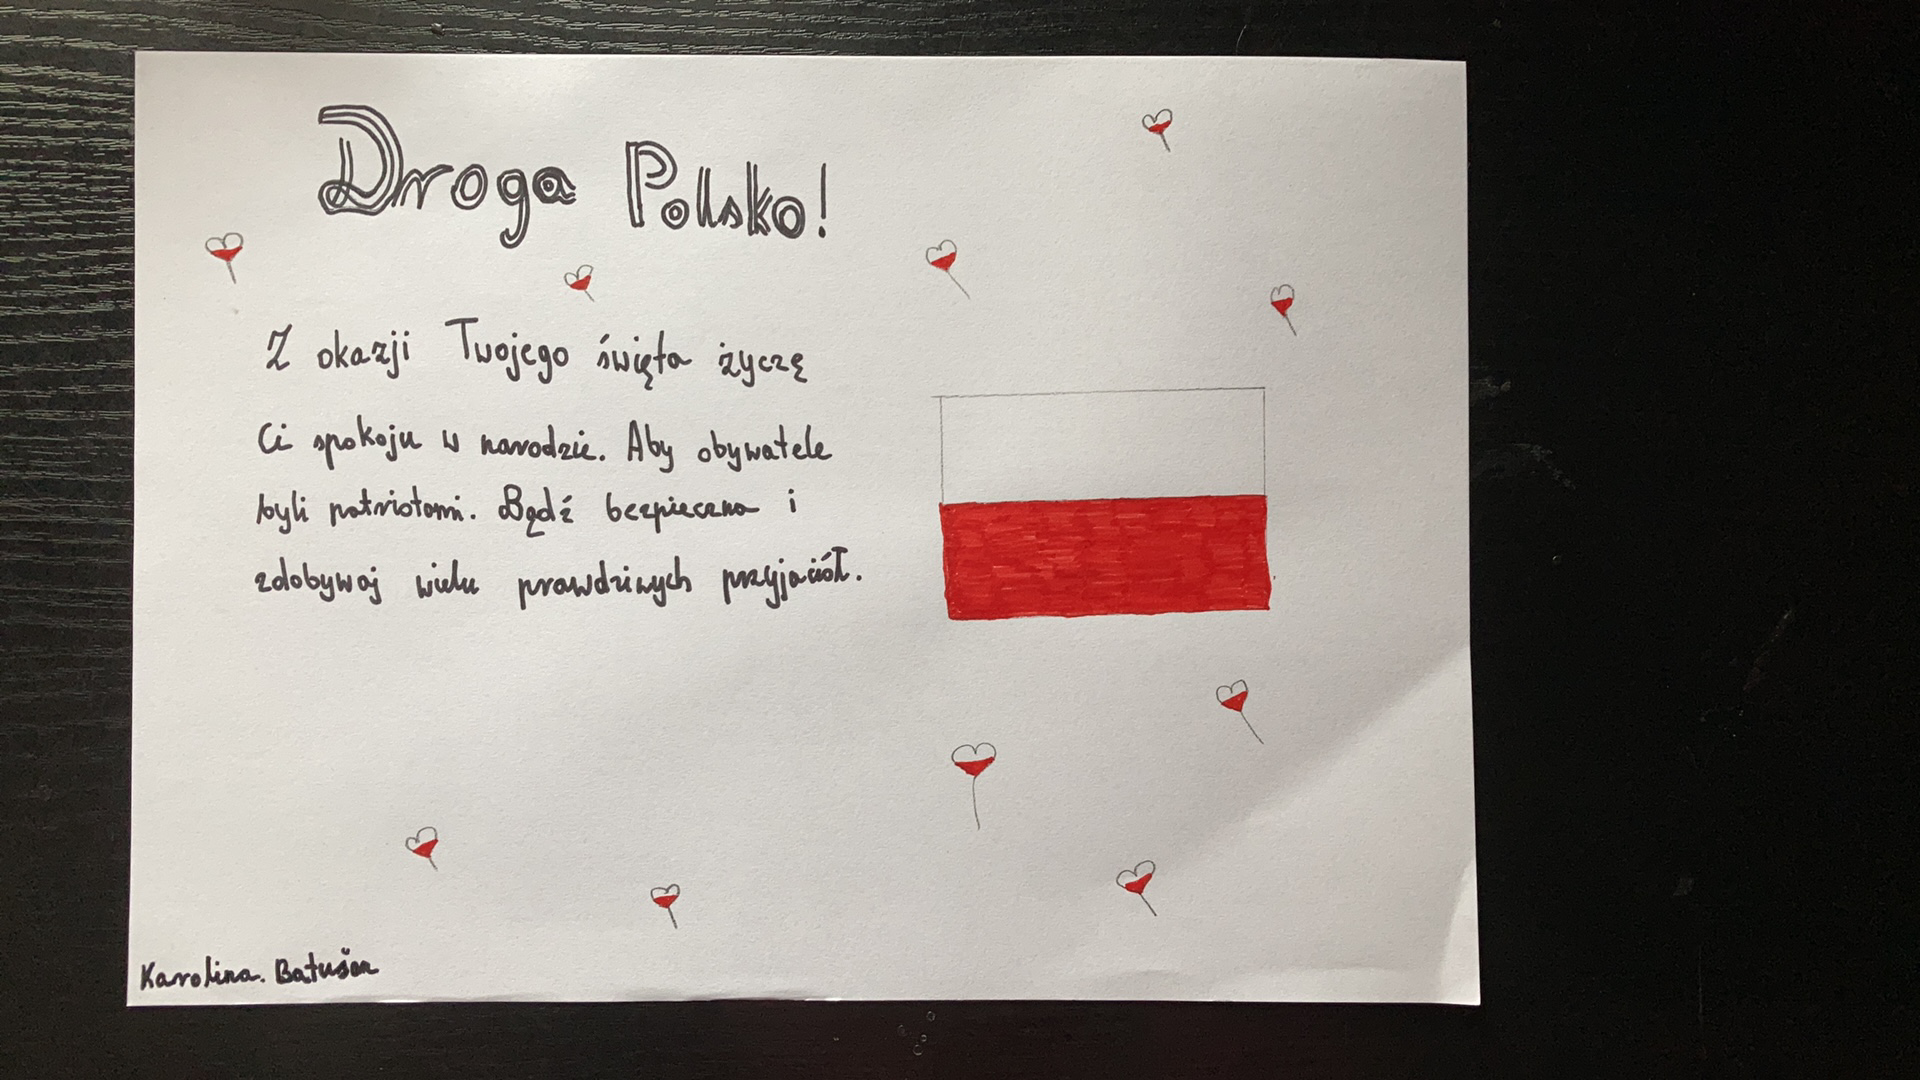 Droga Polsko!
Z okazji Twojego święta życzę
Ci spokoju w narodzie. Aby obywatele
byli patriotami. Bądź bezpieczna i
zdobywaj wielu prawdziwych przyjaciół.
Karolina. Batušan